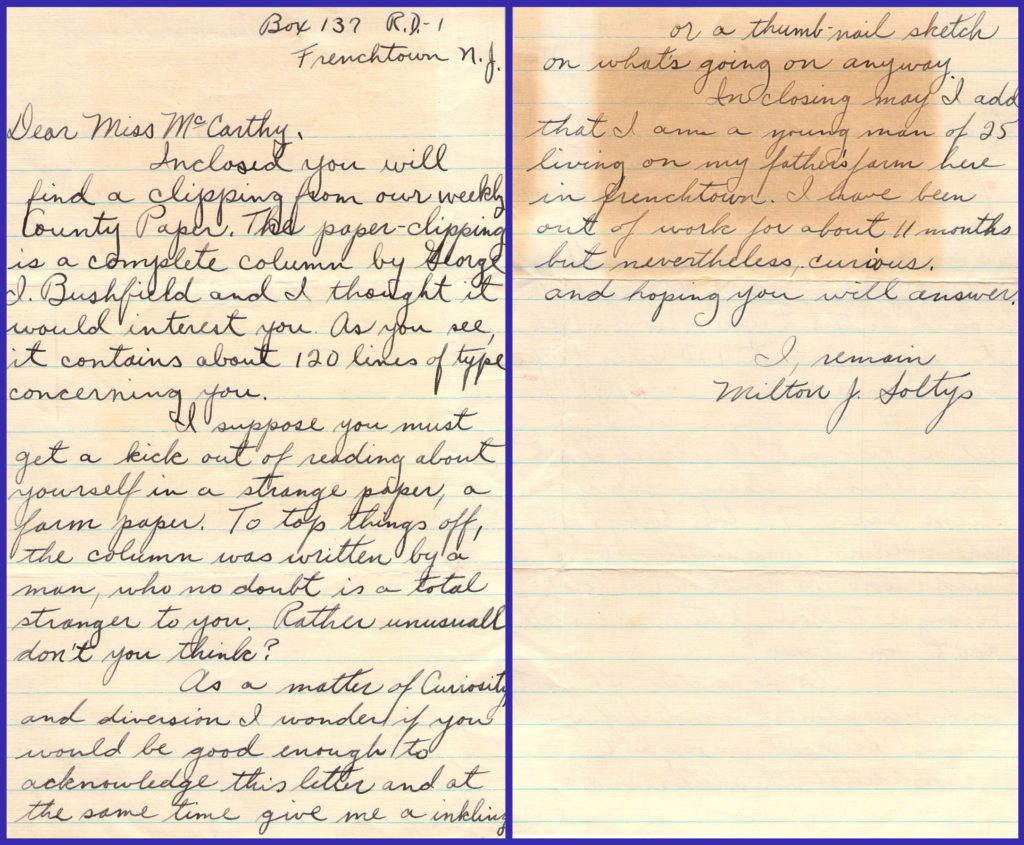 Box 137 R.D-1
Frenchtown N.J.
Dear Miss McCarthy,
Inclosed you will
find a clipping from our weekly
County Paper. The paper-clipping
is a complete column by George
I. Bushfield and I thought it
would interest you. As you see,
it contains about 120 lines of type
concerning you.
I suppose you must
get a kick out of reading about
yourself in a strange paper, a
farm paper. To top things off,
the column was written by a
man, who no doubt is a total
stranger to you. Rather unusuall
don't you think?
As a matter of Curiosity
and diversion I wonder if you
would be good enough to
acknowledge this letter and at
the same time give me a inkling
or a thumb-nail sketch
on what's going on anyway.
In closing may I add
that I am a young man of 25
living on my father's farm here
in Frenchtown. I have been
out of work for about 11 months
but nevertheless, curious.
and hoping you will answer.
I, remain
Milton J. Soltys